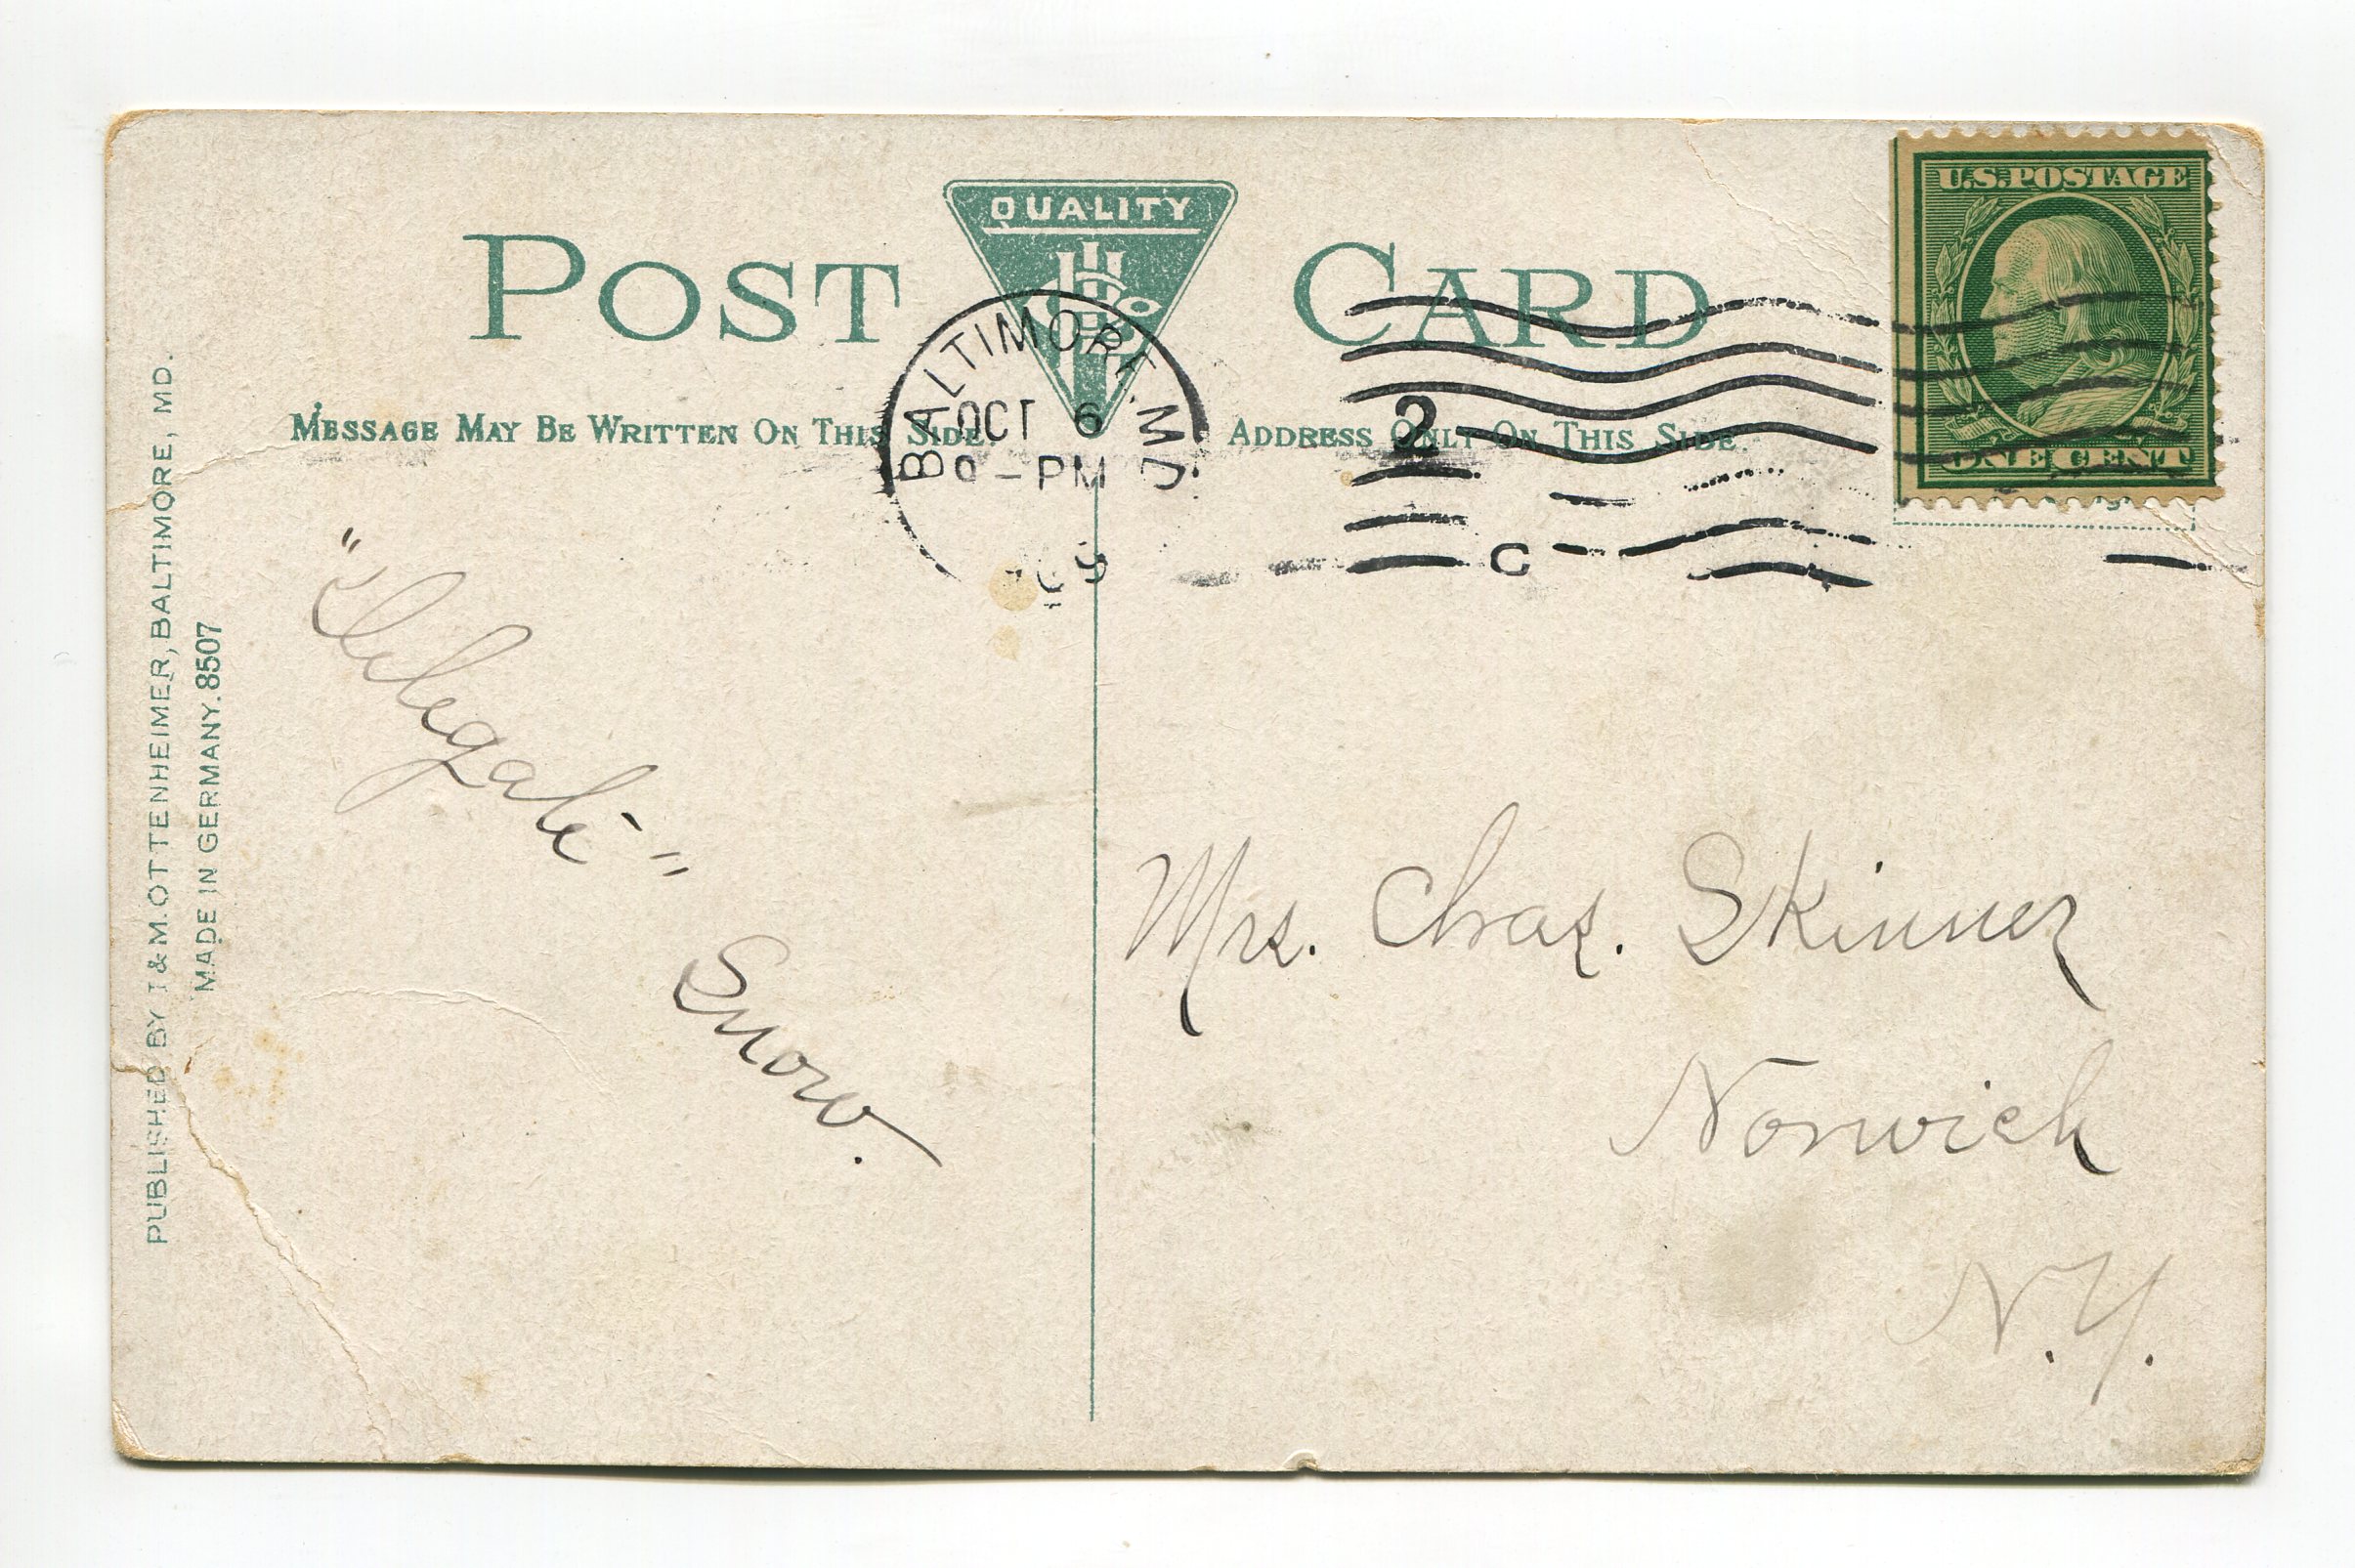 POST CARD
QUALITY
MESSAGE MAY BE WRITTEN ON THIS SIDE.
ADDRESS ONLY ON THIS SIDE.
U.S. POSTAGE
ONE CENT
BALTIMORE, MD.
OCT 6
-PM
2
C
PUBLISHED BY I & M. OTTENHEIMER, BALTIMORE, MD.
MADE IN GERMANY. 8507
"Delegate"
Snow.
Mrs. Chas. Skinner
Norwich
N.Y.